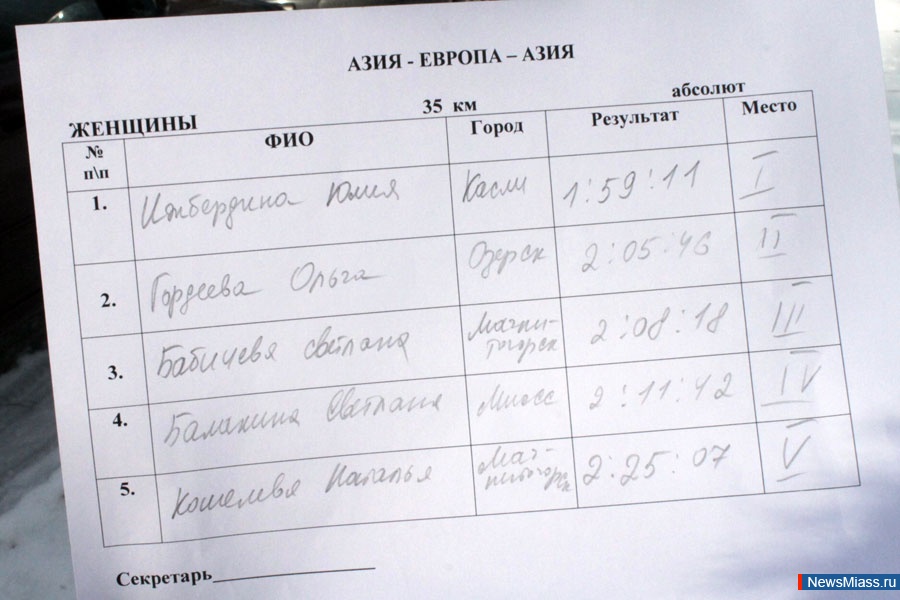 АЗИЯ - ЕВРОПА – АЗИЯ
ЖЕНЩИНЫ 35 км абсолют
№ п\п ФИО Город Результат Место
1. Ишбердина Юлия Касли 1:59:11 I
2. Гордеева Ольга Озерск 2:05:46 II
3. Бабичева Светлана Магни-
тогорск 2:08:18 III
4. Балакина Светлана Миасс 2:11:42 IV
5. Кошелева Наталья Маг-
нитогорск 2:25:07 V
Секретарь
NewsMiass.ru